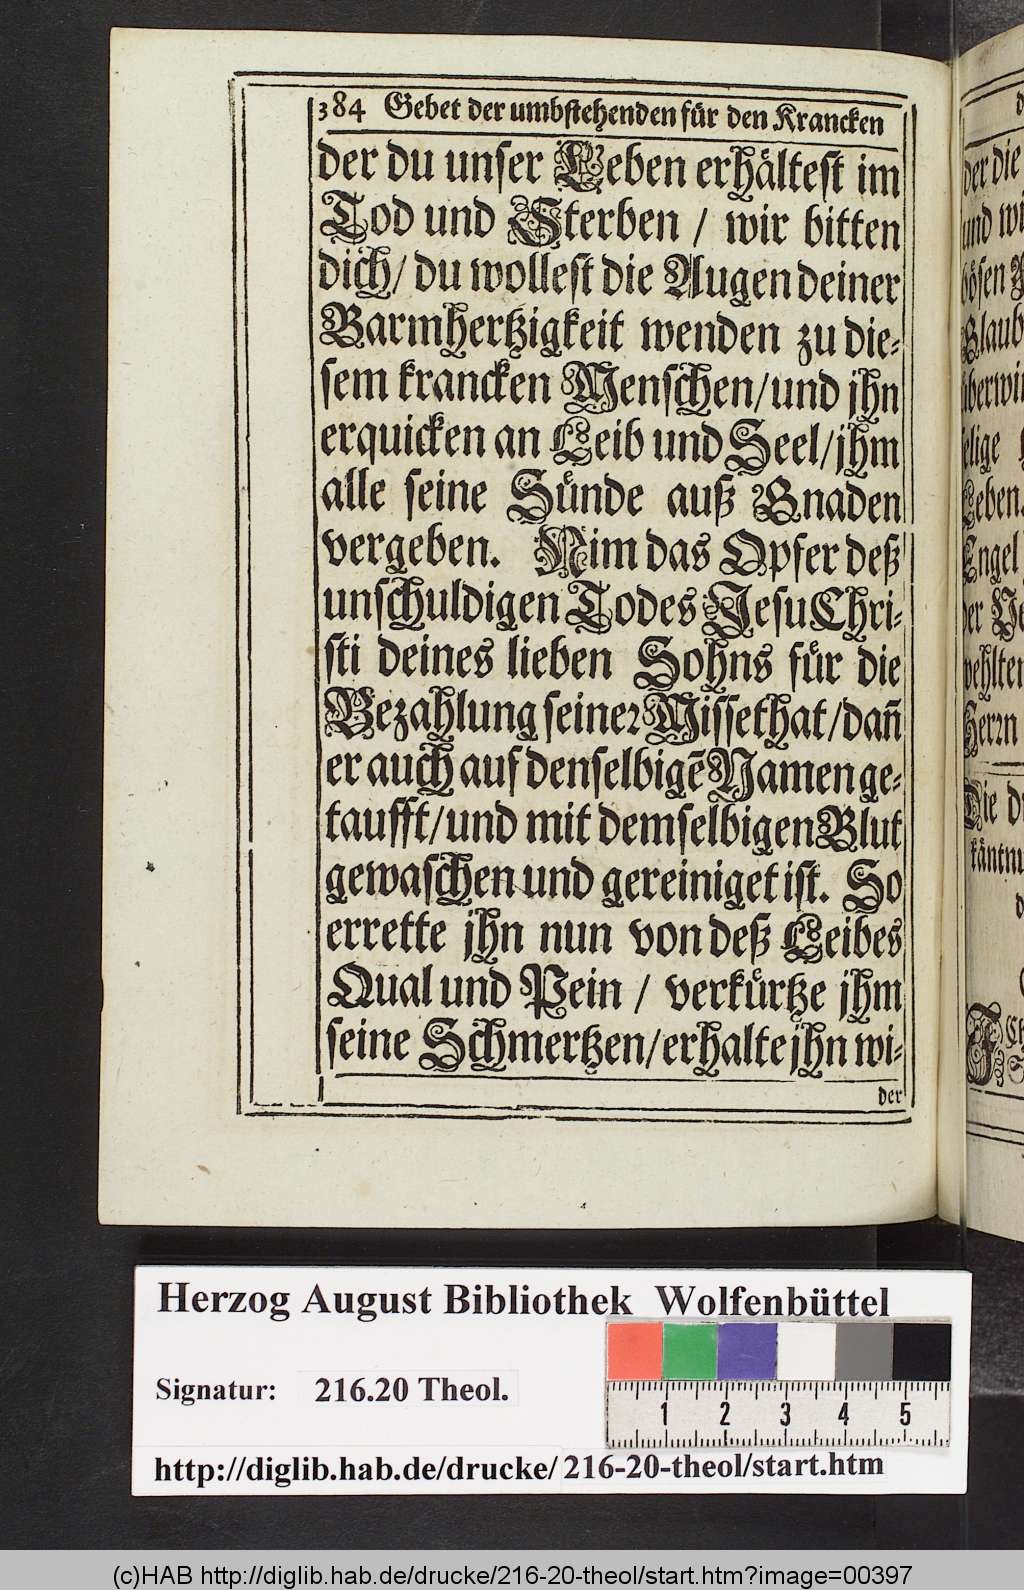 384 Gebet der umbstehenden für den Krancken
der du unser Leben erhältest im
Tod und Sterben / wir bitten
dich/ du wollest die Augen deiner
Barmhertzigkeit wenden zu die-
sem krancken Menschen/ und jhn
erquicken an Leib und Seel/ jhm
alle seine Sünde auß Gnaden
vergeben. Nim das Opfer deß
unschuldigen Todes Jesu Chri-
sti deines lieben Sohns für die
Bezahlung seiner Missethat/ dañ
er auch auf denselbigẽ Namen ge-
taufft/ und mit demselbigen Blut
gewaschen und gereiniget ist. So
errette jhn nun von deß Leibes
Qual und Pein / verkürtze jhm
seine Schmertzen/ erhalte jhn wi-
der
der die
und
bösen
Glaub
überwi
selige
Leben
Engel
der
Herrn
Die
Herzog August Bibliothek Wolfenbüttel
Signatur: 216.20 Theol.
1 2 3 4 5
http://diglib.hab.de/drucke/ 216-20-theol/start.htm
(c)HAB http://diglib.hab.de/drucke/216-20-theol/start.htm?image=00397